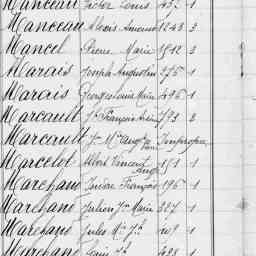 Manceau Victor Louis 432 1
Manceau Alexis Amand 1243 3
Mancel Pierre Marie 1512 3
Marais Joseph Augustin 275 1
Marais Georges Louis Marie 496 1
Marcault Jn François 793 3
Marcault Jn Mie Impropre
Marcelot Albert Vincent Aug. 153 1
Marchand Isidore François 196 1
Marchand Julien Jn Marie 327 1
Marchand Jules Mie Jh 1
Marchand Louis Jh 498 1